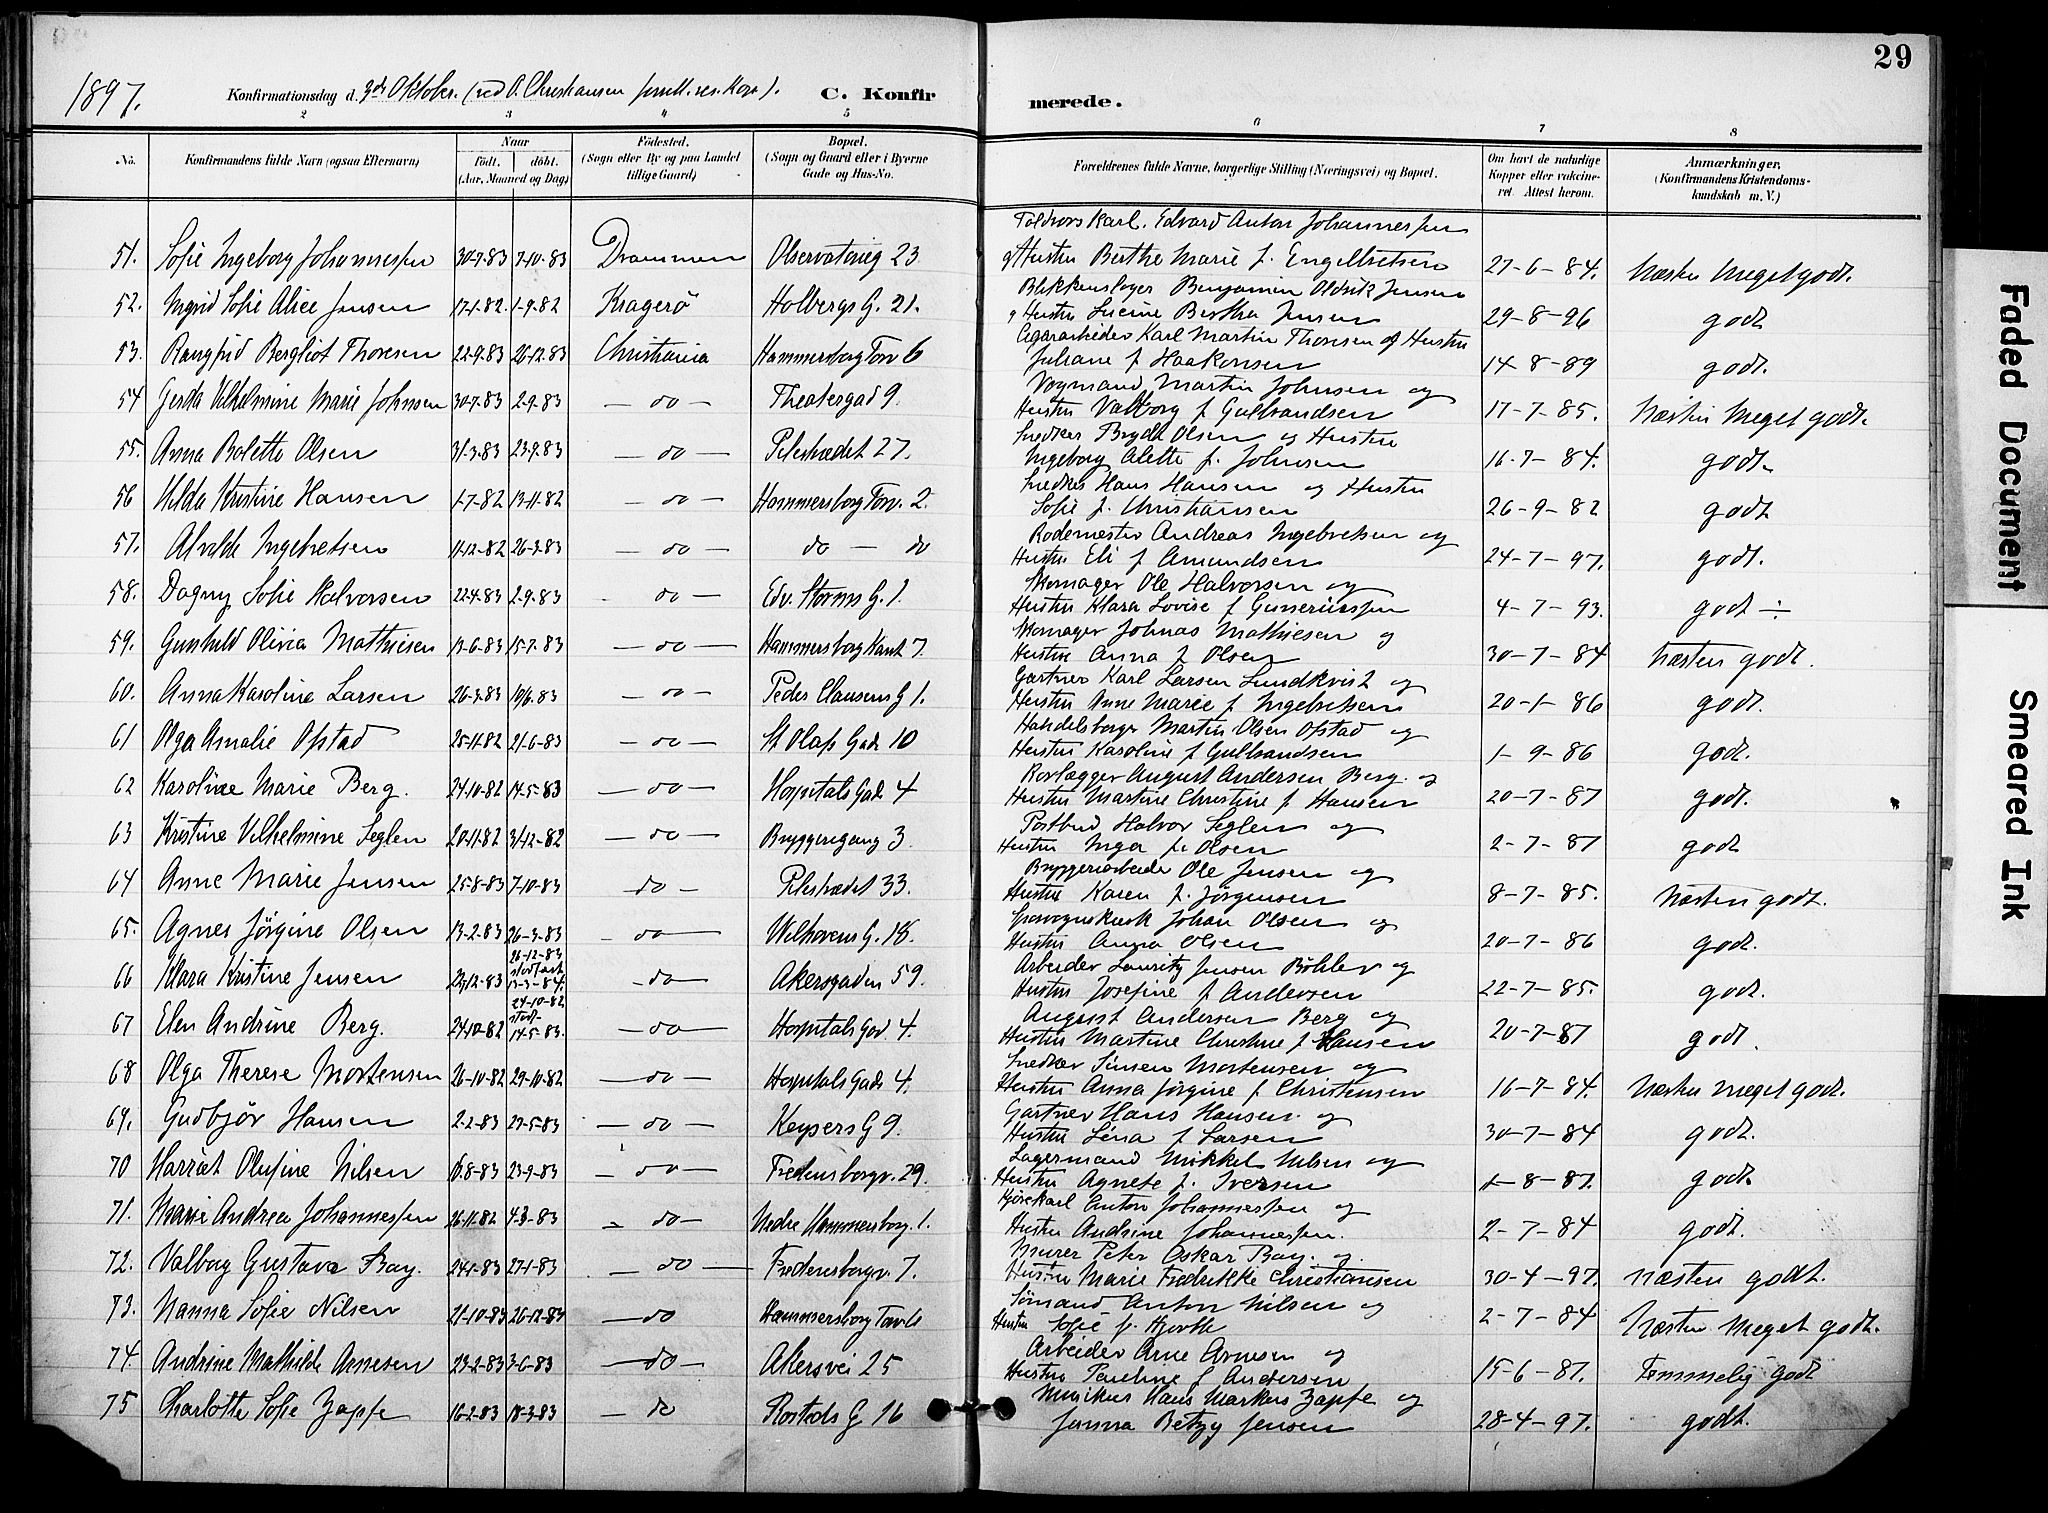 29
1897. Konfirmationsdag d. 3de Oktober. (ved O. Christiansen
C. Konfirmerede.
2 3 4 5 6 7 8
No. Konfirmandens fulde Navn (ogsaa Efternavn) Naar födt. döbt. (Aar, Maaned og Dag) Födested. (Sogn eller By og paa Landet tillige Gaard) Bopæl. (Sogn og Gaard eller i Byerne Gade og Hus-No. Forældrenes fulde Navne, borgerlige Stilling (Næringsvei) og Bopæl. Om havt de naturlige Kopper eller vakcineret. Attest herom. Anmærkninger. (Konfirmandens Kristendomskundskab m. V.)
Karl. Edvard Anton Johannessen
51. Sofie Ingeborg Johannessen 30-7-83 7-10-83 Drammen Observatorieg 23 og Hustru Berthe Marie f. Engelbretsen 27-6-84. Næsten Meget godt.
Blikkenslager Benjamin Oldrik Jensen
52. Ingrid Sofie Alice Jensen 17-1-82. 1-9-82 Kragerö Holbergs G. 21. Hustru Lucine Berthea Jensen 29-8-96 godt
Cigararbeider Karl Martin Thoresen og Hustru
53. Rangfrid Bergliot Thoresen 22-9-83 26-12-83 Christiania Hammersborg Torv 6 Juliane f. Haakonsen 14-8-89 godt.
Vognmand Martin Johnsen og
54 Gerda Vilhelmine Marie Johnsen 30-7-83 2-9-83 — do — Theatergad 9. Hustru Valborg f Gulbrandsen 17-7-85. Næsten Meget godt.
Snedker Brydt Olsen og Hustru
55. Anna Bolette Olsen 31-3-83 23-9-83 — do — Pilestrædet 27. Ingeborg Alette f. Johnsen 16-7-84. godt.
Snedker Hans Hansen og Hustru
56 Hilda Kristine Hansen 1-7-82 13-11-82 — do — Hammersborg Torv. 2. Sofie f. Christiansen 26-9-82 godt
Rodemester Andreas Ingebretsen og
57. Alvilde Ingebretsen 11-12-82 26-3-83 — do — do — do Hustru Eli f Amundsen 24-7-97. godt.
Skomager Ole Halvorsen og
58. Dagny Sofie Halvorsen 22-4-83 2-9-83 - do — Edv. Storms G. 1. Hustru Klara Lovise f Guneriussen 4-7-93. godt ÷
Skomager Johnas Mathiesen og
59. Gunhild Olivia Mathiesen 13-6-83 15-7-83 — do — Hammersborg Kant 7. Hustru Anna f Olsen 30-7-84 Næsten godt.
Gartner Karl Larsen Lundkvist og
60. Anna Karoline Larsen 26-3-83 10/6.83 — do — Peder Clausens G 1. Hustru Anne Marie f Ingebretsen 20-1-86 godt.
Handelsborger Martin Olsen Opstad og
61 Olga Amalie Opstad 25-11-82 21-6-83 — do — St Olafs Gade 10 Hustru Karoline f Gulbrandsen 1-9-86 godt.
Rorlægger August Andersen Berg. og
62 Karoline Marie Berg. 24-10-82 14-5-83 — do — Hospitals Gad. 4 Hustru Martine Christine f Hansen 20-7-87 godt.
Postbud Halvor Seglen og
63 Kristine Vilhelmine Seglen 20-11-82 31-12-82 — do — Bryggerigang 3. Hustru Inga f. Olsen 2-7-87 godt
Bryggeriarbeider Ole Jensen og
64 Anne Marie Jensen 25-8-83 7-10-83 — do — Pilestrædet 33. Hustru Karen f. Jörgensen 8-7-85. Næsten godt.
Sporvognskusk Johan Olsen og
65. Agnes Jörgine Olsen 13-2-83 26-3-83 — do — Welhavens G. 18. Hustru Anna Olsen 20-7-86 godt.
26-12-83
Arbeider Lauritz Jensen Böhler og
66 Klara Kristine Jensen 23/12-83 13-3-84. — do — Akersgaden 59. Hustru Josefine f Andersen 22-7-85. godt.
24-10-82
August Andersen Berg og
67 Elen Andrine Berg. 24-10-82 14-5-83. — do — Hospitals Gad. 4. Hustru Martine Christine f Hansen 20-7-87 godt.
Snedker Simon Mortensen og
68 Olga Therese Mortensen 26-10-82 29-10-82 — do — Hospitals Gade 4. Hustru Anna Jörgine f Christensen 16-7-84. Næsten meget godt.
Gartner Hans Hansen og
69. Gudbjör Hansen 2-2-83 29-5-83 — do — Keysers G 9. Hustru Lina f Larsen 30-7-84 godt.
Lagermand Mikkel Nilsen og
70 Harriet Olufine Nilsen 10.8-83 23-9-83 — do — Fredensborgv. 29. Hustru Agnete f. Iversen 1-8-87. godt.
Kjörekarl Anton Johannessen og
71. Marie Andrea Johannessen 26-11-82 4-3-83 - do — Nedre Hammersborg. 1. Hustru Andrine Johannessen. 2-7-84 godt.
Murer Peter Oskar Bay. og
72. Valborg Gustava Bay. 24-1-83 27-1-83 — do — Fredensborgv. 7. Hustru Marie Fredrikke Christiansen 30-4-97. Næsten godt.
Sömand Anton Nilsen og
73. Nanna Sofie Nilsen 21-10-83 26-12-83 — do Hammersborg Torv 6 Hustru Sofie f. 2-7-84 Næsten Meget godt.
Arbeider Arne Arnesen og
74. Andrine Mathilde Arnesen 23-2-83 3-6-83 — do — Akersvei 25 Hustru Pauline f Andersen 15-6-87. Temmelig godt
Musikus Hans Markus Zapfe og
75 Charlotte Sofie Zapfe 16-2-83 18-3-83 — do Rosteds G. 16 Janna Betzy Jensen 28-4-97. godt.
Faded Document
Smeared Ink